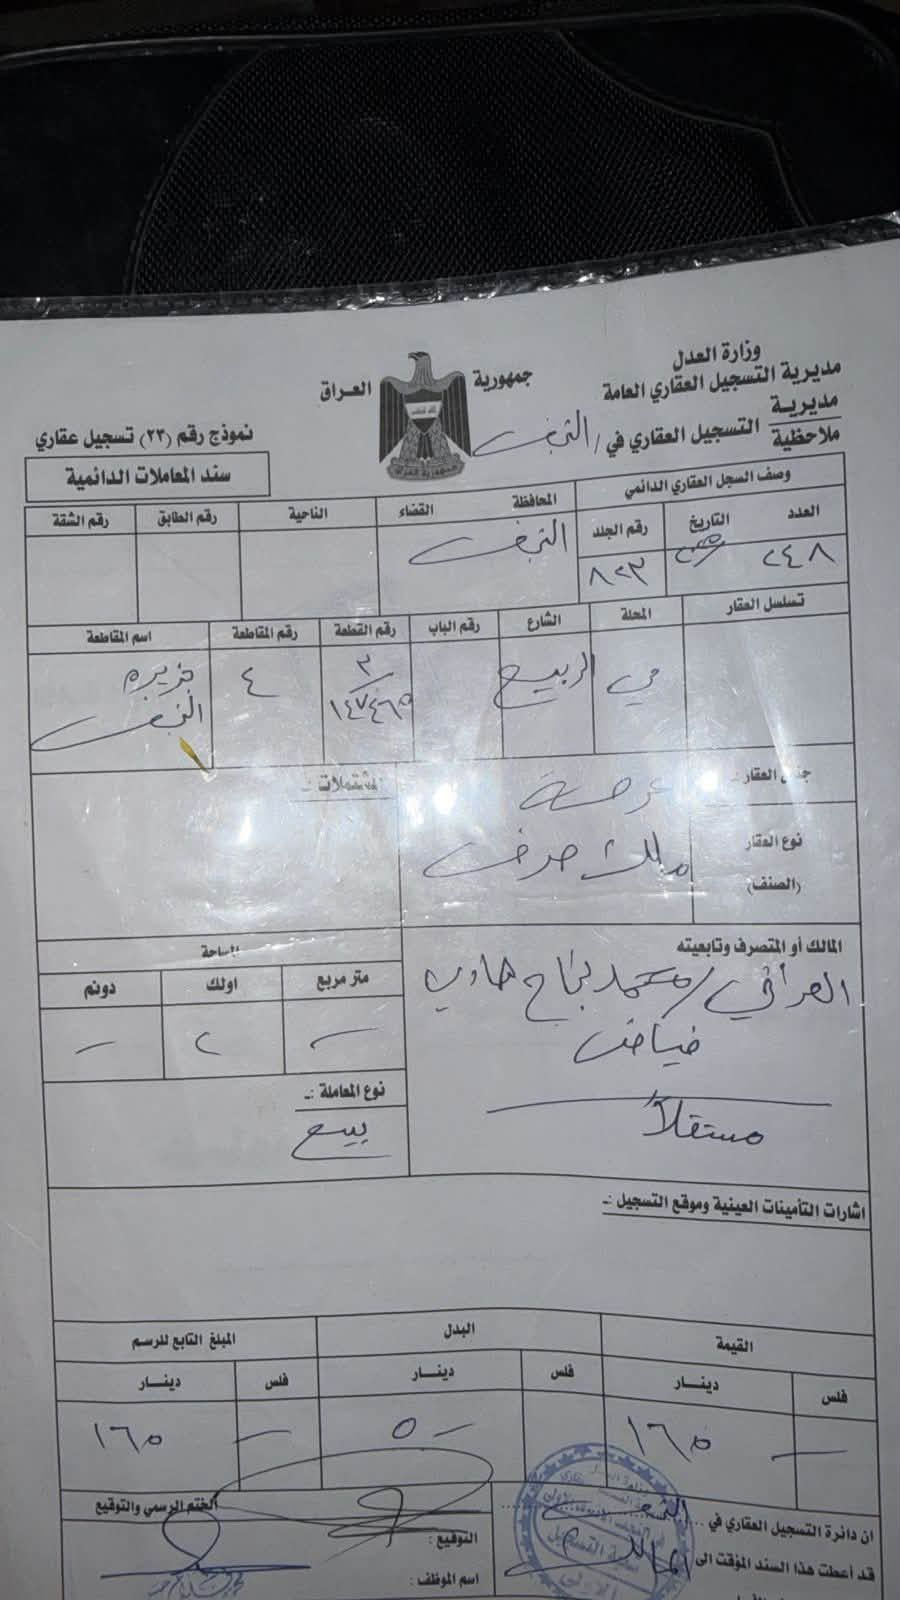 وزارة العدل
مديرية التسجيل العقاري العامة
مديرية
ملاحظية
التسجيل العقاري في / النجف
جمهورية العراق
نموذج رقم (٢٣) تسجيل عقاري
سند المعاملات الدائمية
وصف السجل العقاري الدائمي
العدد التاريخ رقم الجلد
٢٤٨ ٨٢٣
المحافظة القضاء الناحية رقم الطابق رقم الشقة
النجف
تسلسل العقار المحلة الشارع رقم الباب رقم القطعة رقم المقاطعة اسم المقاطعة
حي الربيع ٣/١٤٧٤٦٥ ٤ جزيرة
النجف
جنس العقار :ـ عرصة
المشتملات :ـ
نوع العقار
(الصنف)
ملك صرف
المالك أو المتصرف وتابعيته
العراقي / محمد نجاح هادي
مستقلاً
المساحة
متر مربع اولك دونم
ـ ٢ ـ
نوع المعاملة :ـ
بيع
اشارات التأمينات العينية وموقع التسجيل :ـ
القيمة البدل المبلغ التابع للرسم
فلس دينـــار فلس دينـــار فلس دينـــار
ـ ١٦٥ ـ ٥٠ ـ ١٦٥
ان دائرة التسجيل العقاري في النجف
قد أعطت هذا السند المؤقت الى المالك
الختم الرسمي والتوقيع
التوقيع :
اسم الموظف :